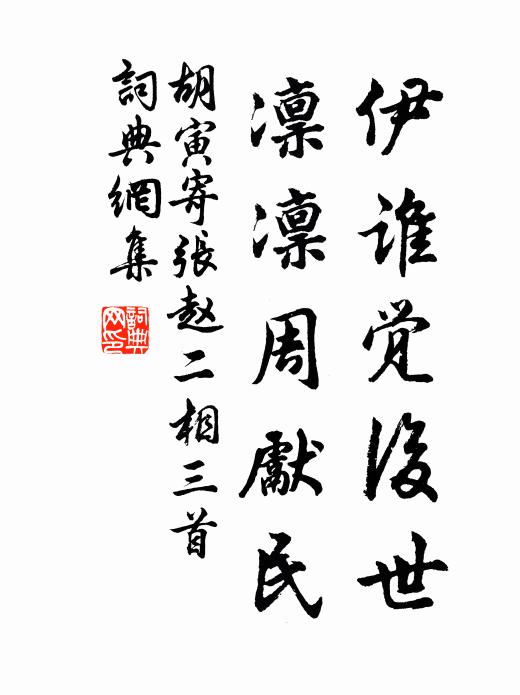 伊谁觉後世
凛凛周獻民
胡寅寄張赵二相三首
詞典網集
詞典网印